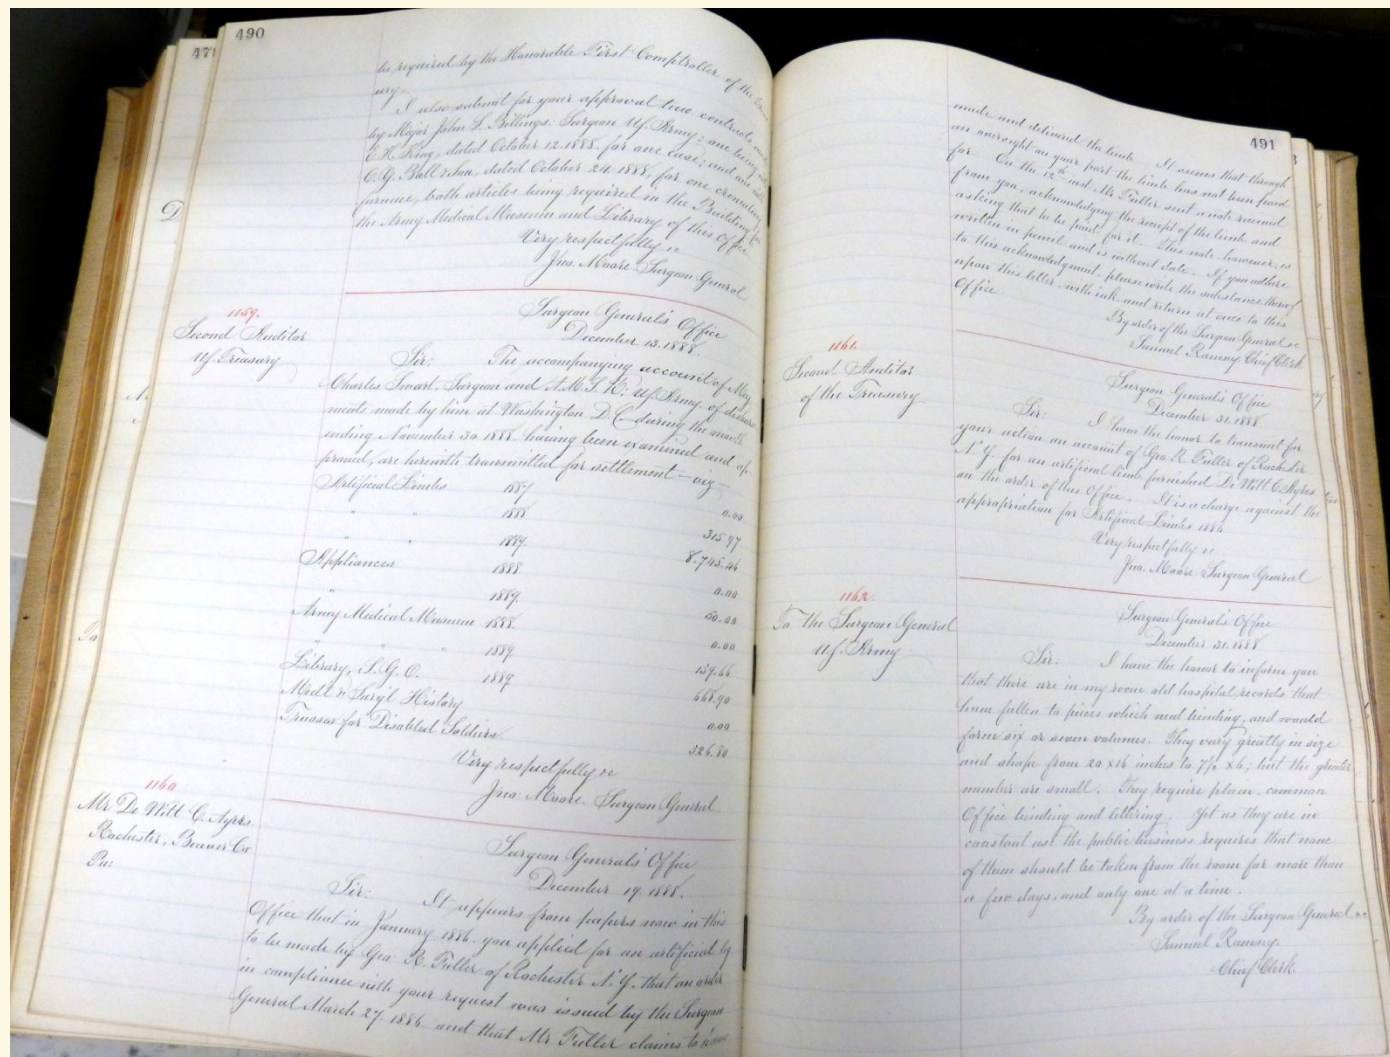 490
be required by the Honorable First Comptroller of the
ury.
I also submit for your approval two contracts made
by Major John S. Billings. Surgeon U.S. Army: one being with
C. H. King, dated October 12. 1888. for one case; and one with
C. G. Ball & Son. dated October 24. 1888, for one cremating
furnace, both articles being required in the Building for
the Army Medical Museum and Library of this Office
Very respectfully &c
Jno. Moore. Surgeon General
1159.
Second Auditor
U.S. Treasury
Surgeon General's Office
December 13. 1888.
Sir: The accompanying account of Maj
Charles Smart. Surgeon and A.M.S.K. U.S. Army of disburse
ments made by him at Washington D.C. during the month
ending November 30. 1888. having been examined and ap
proved, are herewith transmitted for settlement – viz –
Artificial Limbs 1887
" " 1888 0.00
" 1889. 315.97
Appliances 1888 8.745.46
" 1889. 0.00
Army Medical Museum 1888. 50.00
" " 1889 0.00
Library, S.G.O. 1889 159.66
Medl & Surgl History 468.90
Trusses for Disabled Soldiers 0.00
526.80
Very respectfully &c
Jno. Moore. Surgeon General
1160
Mr De Witt C. Ayres
Rochester, Beaver Co
Pa:
Surgeon General's Office
December 19. 1888.
Sir: It appears from papers now in this
Office that in January 1886 you applied for an artificial leg
to be made by Geo. R. Fuller of Rochester N.Y. that an order
in compliance with your request was issued by the Surgeon
General March 27. 1886 and that Mr Fuller claims to have
491
made and delivered the limb. It seems that through
an oversight on your part the limb has not been paid
for. On the 12th inst. Mr Fuller sent a note received
from you, acknowledging the receipt of the limb and
asking that to be paid for it. This note, however, is
written in pencil and is without date. If you adhere
to this acknowledgment please write the substance thereof
upon this letter with ink and return at once to this
Office.
By order of the Surgeon General &c
Samuel Ramsey Chief Clerk
1161.
Second Auditor
of the Treasury
Surgeon General's Office
December 31. 1888
Sir: I have the honor to transmit for
your action an account of Geo. R. Fuller of Rochester
N.Y. for an artificial limb furnished De Witt C. Ayres
on the order of this Office. It is a charge against the
appropriation for Artificial Limbs 1886
Very respectfully &c
Jno. Moore Surgeon General
1162.
To the Surgeon General
U.S. Army
Surgeon General's Office
December 31. 1888
Sir: I have the honor to inform you
that there are in my room old hospital records that
have fallen to pieces which need binding, and would
form six or seven volumes. They vary greatly in size
and shape from 20 x 16 inches to 7½ x 6; but the greater
number are small. They require plain common
Office binding and lettering. Yet as they are in
constant use the public business requires that none
of them should be taken from the room for more than
a few days and only one at a time.
By order of the Surgeon General &c
Samuel Ramsey.
Chief Clerk.